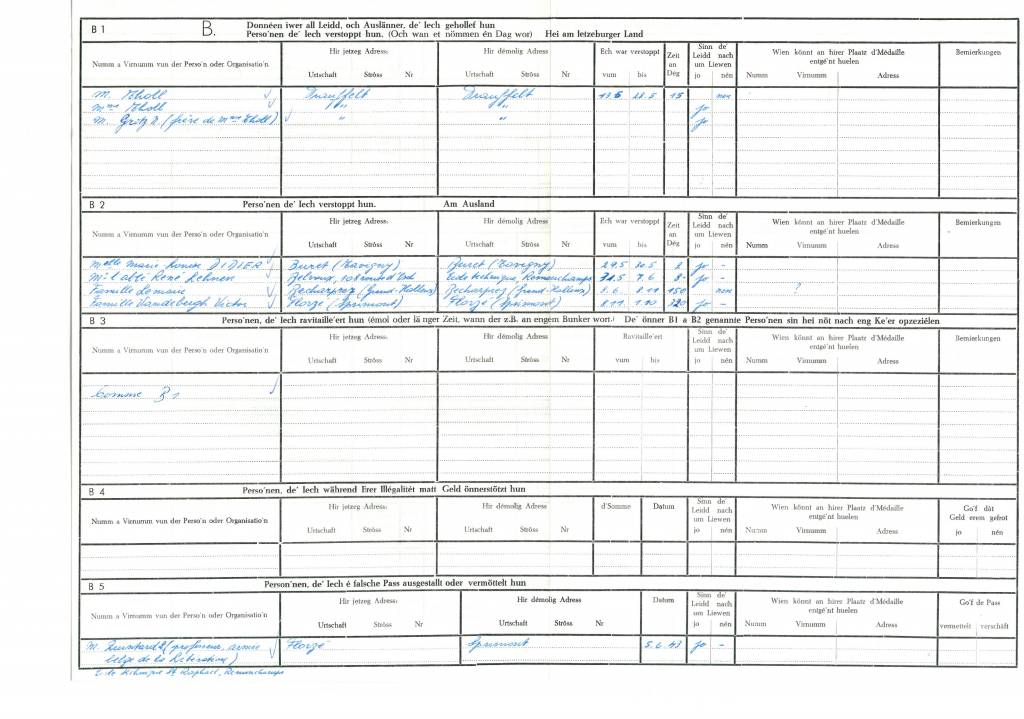 B 1 B. Donnéen iwer all Leidd, och Auslänner, de' Iech gehollef hun
Perso'nen de' Iech verstoppt hun. (Och wan et nömmen én Dag wor) Hei am letzeburger Land
Numm a Virnumm vun der Perso'n oder Organisatio'n
Hir jetzeg Adress: Urtschaft Ströss Nr
Hir démolig Adress Urtschaft Ströss Nr
Ech war verstoppt vum bis
Zeit an Dég
Sinn de' Leidd nach um Liewen jo nén
Wien könnt an hirer Plaatz d'Médaille entgé'nt huelen Numm Virnumm Adress
Bemierkungen
M. Tholl Drauffelt Drauffelt 28.5 15 non
Mme Tholl " " jo
M. (frère de Mme Tholl) " " jo
B 2 Perso'nen de' Iech verstoppt hun. Am Ausland
Numm a Virnumm vun der Perso'n oder Organisatio'n
Hir jetzeg Adress: Urtschaft Ströss Nr
Hir démolig Adress Urtschaft Ströss Nr
Ech war verstoppt vum bis
Zeit an Dég
Sinn de' Leidd nach um Liewen jo nén
Wien könnt an hirer Plaatz d'Médaille entgé'nt huelen Numm Virnumm Adress
Bemierkungen
Melle Marie Louise DIDIER Buret (Tavigny) Buret (Tavigny) 29.5 30.5 2 jo -
Mr l'abbé René Lehnen 7.6 8 jo -
Famille Lemaire 8.6. 8.11 150 non ?
Famille Vandebergh Victor Florzé (Sprimont) Florzé (Sprimont) 8.11 1.10 320 jo -
B 3 Perso'nen, de' Iech ravitaille'ert hun (émol oder länger Zeit, wann der z.B. an engem Bunker wort.) De' önner B1 a B2 genannte Perso'nen sin hei nöt nach eng Ke'er opzeziélen
Numm a Virnumm vun der Perso'n oder Organisatio'n
Hir jetzeg Adress: Urtschaft Ströss Nr
Hir démolig Adress Urtschaft Ströss Nr
Ravitaille'ert vum bis
Sinn de' Leidd nach um Liewen jo nén
Wien könnt an hirer Plaatz d'Médaille entgé'nt huelen Numm Virnumm Adress
Bemierkungen
Comme B1
B 4 Perso'nen, de' Iech während Erer Illégalitét matt Geld önnerstötzt hun
Numm a Virnumm vun der Perso'n oder Organisatio'n
Hir jetzeg Adress: Urtschaft Ströss Nr
Hir démolig Adress Urtschaft Ströss Nr
d'Somme
Datum
Sinn de' Leidd nach um Liewen jo nén
Wien könnt an hirer Plaatz d'Médaille entgé'nt huelen Numm Virnumm Adress
Go'f dât Geld erem gefrot jo nén
B 5 Person'nen, de' Iech é falsche Pass ausgestallt oder vermöttelt hun
Numm a Virnumm vun der Perso'n oder Organisatio'n
Hir jetzeg Adress: Urtschaft Ströss Nr
Hir démolig Adress Urtschaft Ströss Nr
Datum
Sinn de' Leidd nach um Liewen jo nén
Wien könnt an hirer Plaatz d'Médaille entgé'nt huelen Numm Virnumm Adress
Go'f de Pass vermettelt verschäft
M. (professeur, armée Florzé Sprimont 5.6.43 jo -
belge de la Libération)
St Raphaël, Remouchamps